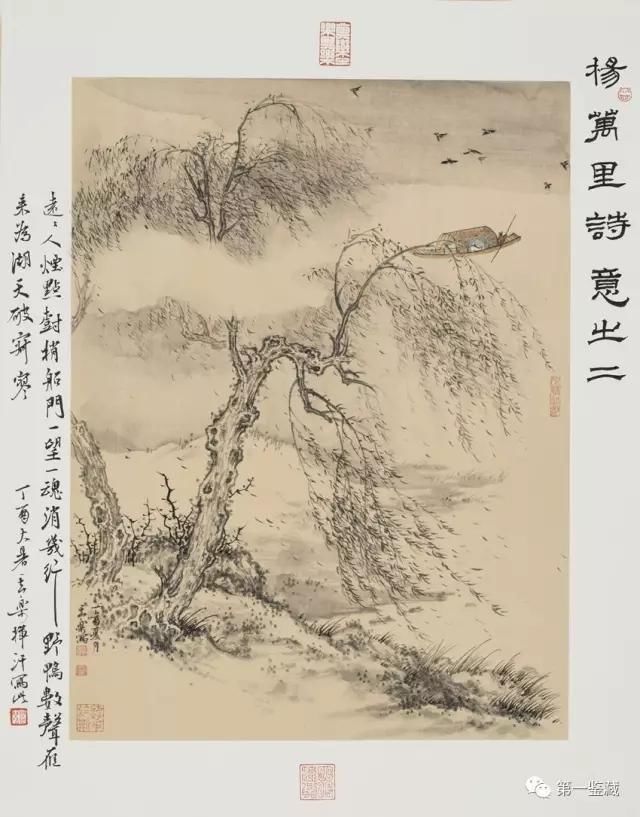 楊萬里詩意之二
丁酉夏月
遠〻人煙點樹梢船門一望一魂消幾行野鴨數聲雁
來為湖天破寂寥
丁酉大暑 樂揮汗寫此
第一鉴藏